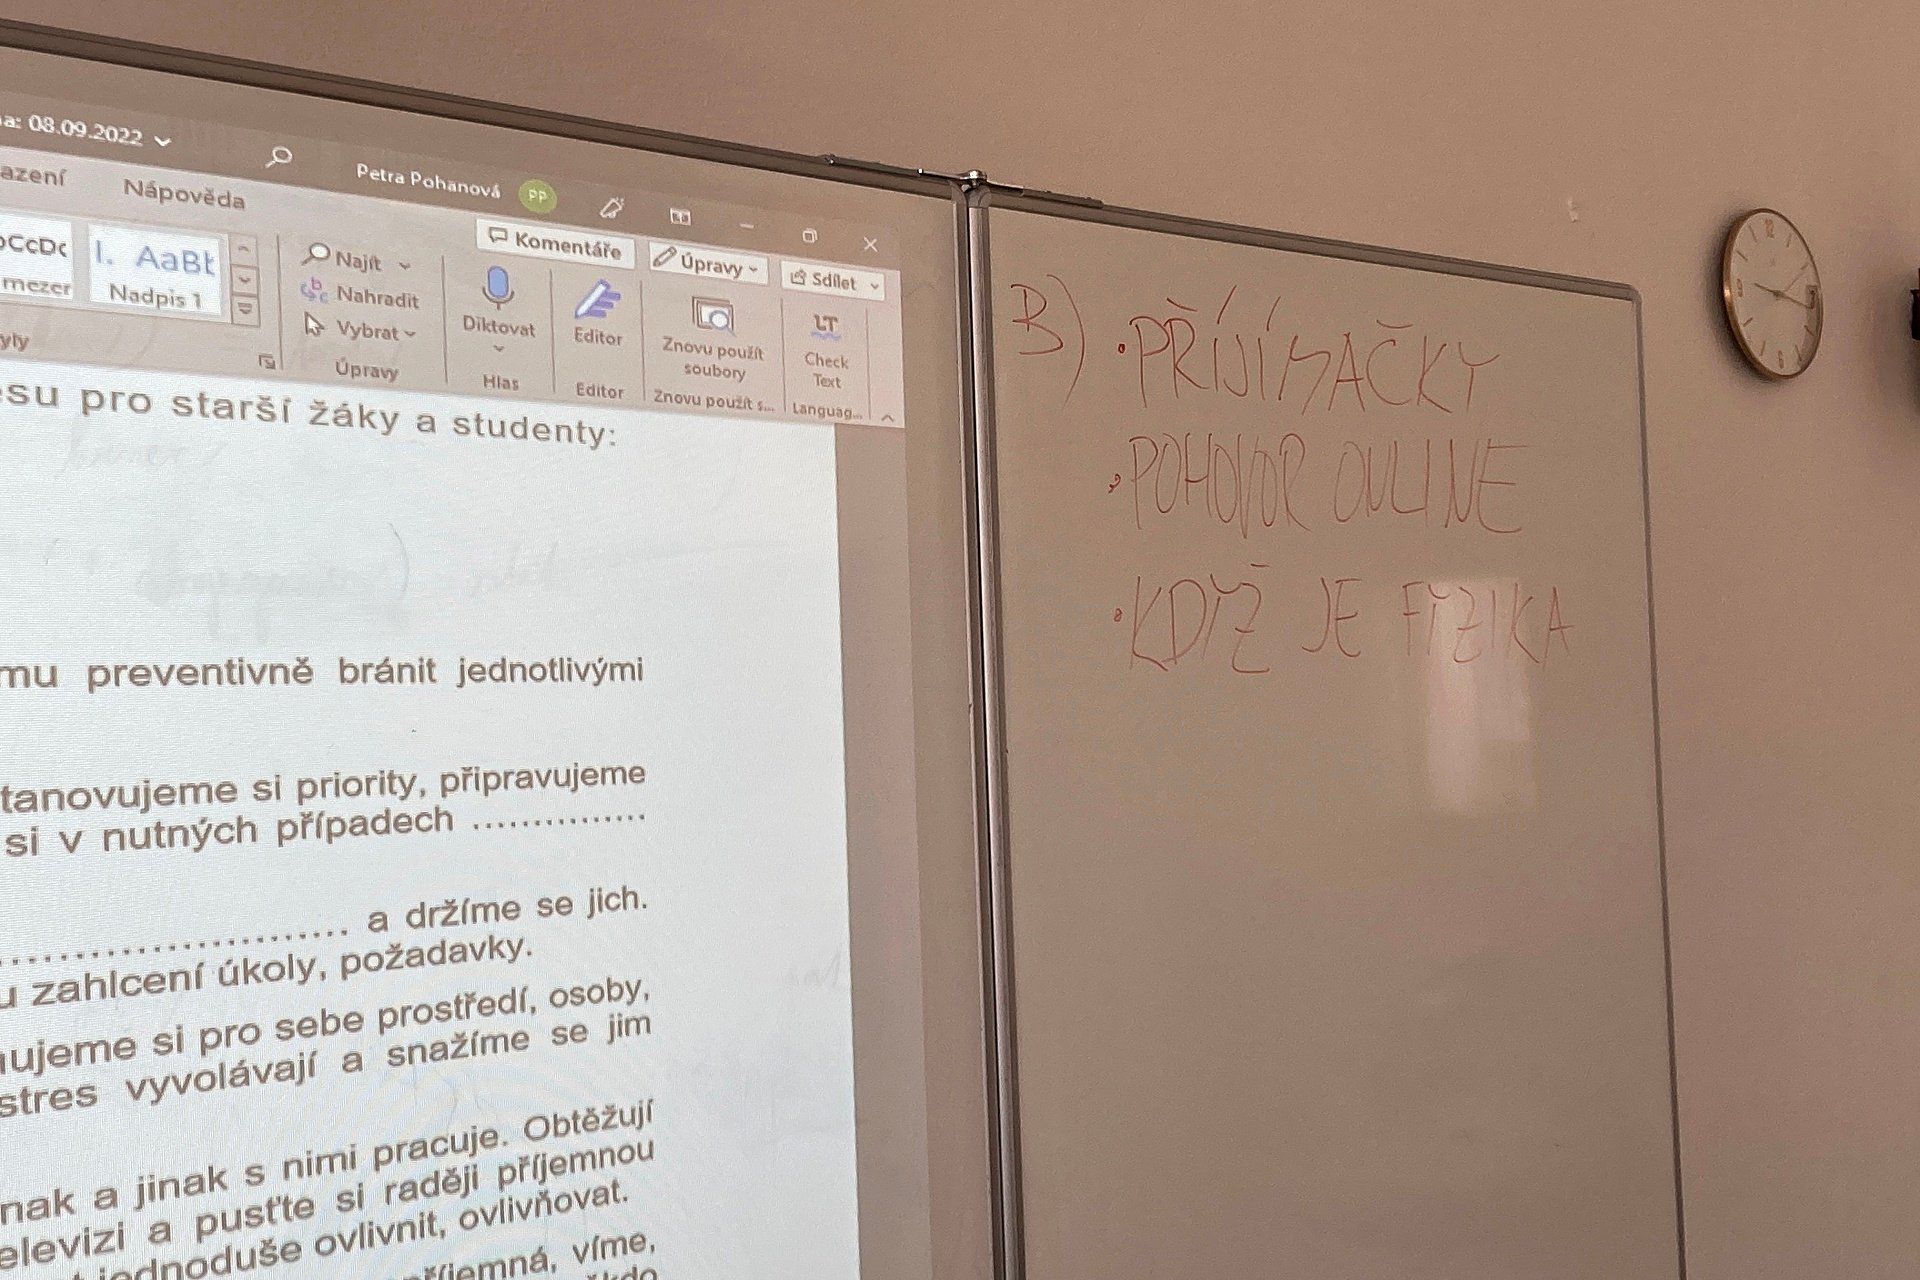 a: 08.09.2022
Petra Pohanová PP
azení Nápověda
Komentáře Úpravy Sdílet
CcDc AaBb
mezer Nadpis 1
Najít
Nahradit
Vybrat
Úpravy
Diktovat
Hlas
Editor
Editor
Znovu použít
soubory
Znovu použít s...
LT
Check
Text
Languag...
yly
esu pro starší žáky a studenty:
mu preventivně bránit jednotlivými
tanovujeme si priority, připravujeme
si v nutných případech ...............
.............................. a držíme se jich.
u zahlcení úkoly, požadavky.
ujeme si pro sebe prostředí, osoby,
stres vyvolávají a snažíme se jim
nak a jinak s nimi pracuje. Obtěžují
elevizi a pusťte si raději příjemnou
jednoduše ovlivnit, ovlivňovat.
říjemná, víme,
ěkdo
B) • PŘÍJÍMAČKY
• POHOVOR ONLINE
• KDYŽ JE FYZIKA
12
3
6
9